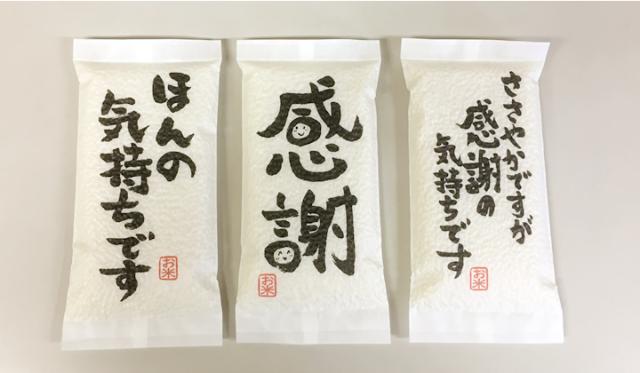 ほんの
気持ちです
お米
感謝
お米
ささやかですが
感謝の
気持ちです
お米